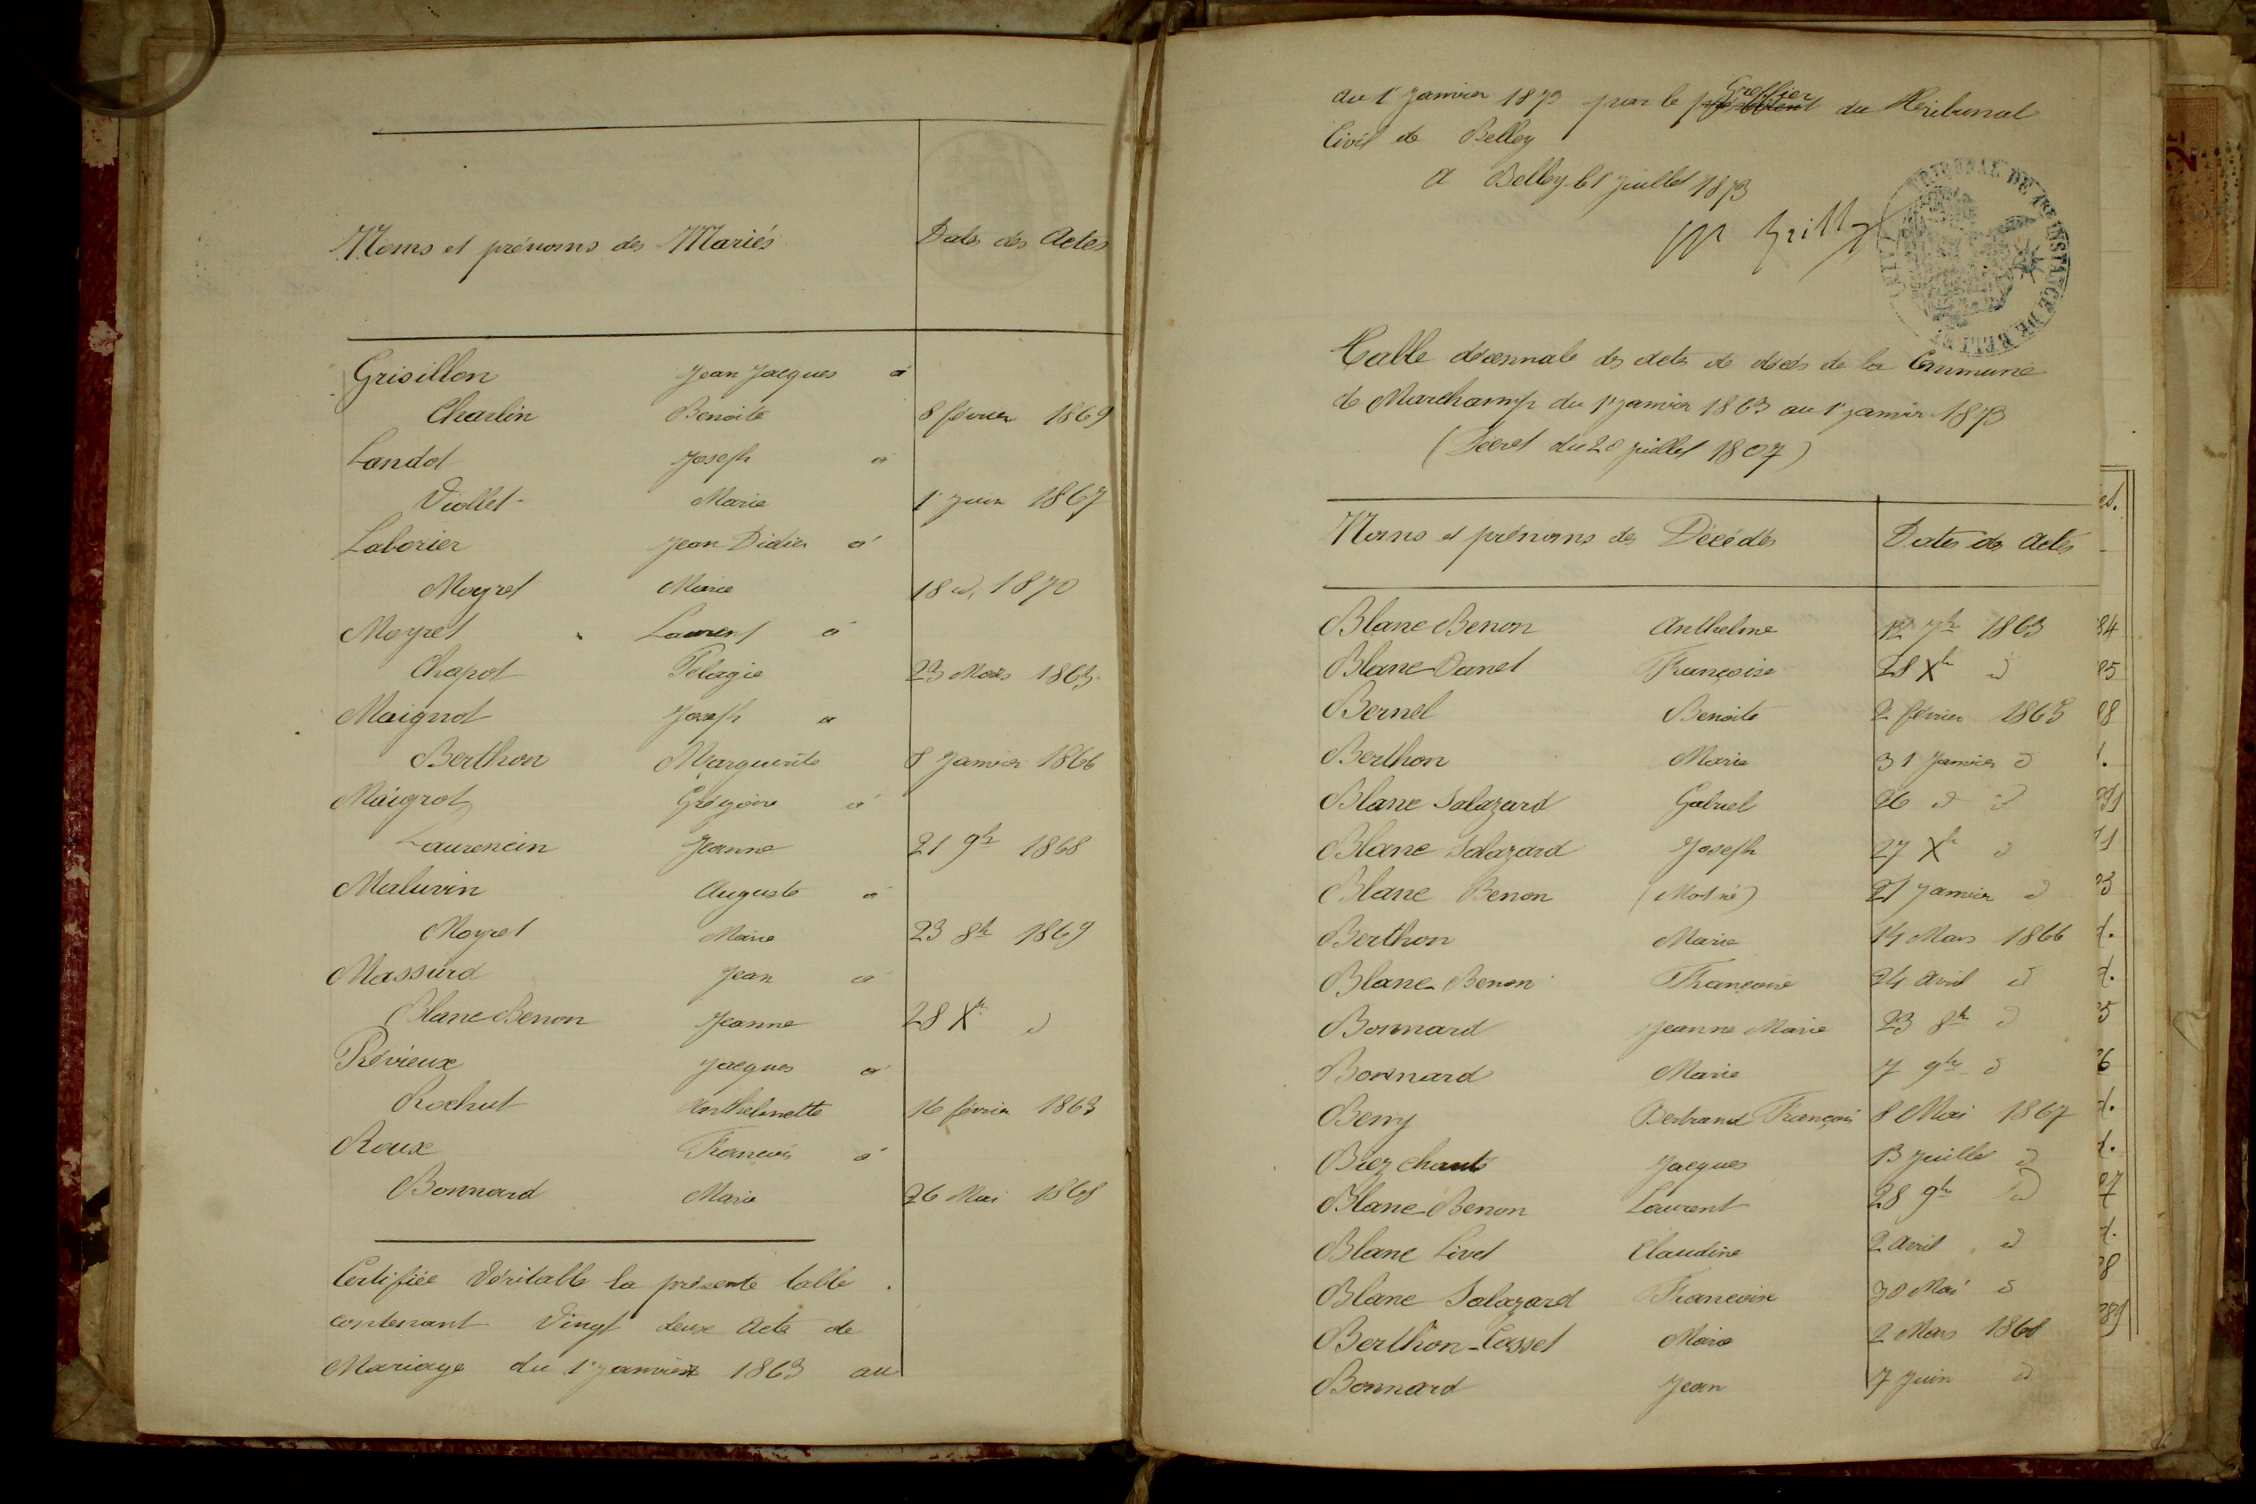 Noms et prénoms des Mariés Dates des Actes
Grisillon Jean Jacques à
Charlin Benoite 8 février 1869
Landot Joseph à
Viollet Marie 1er Juin 1867
Laborier Jean Didier à
Moyret Marie 18 d. 1870
Moyret Laurent à
Chapot Pélagie 23 Mars 1863
Maignot Joseph à
Berthon Marguerite 8 Janvier 1866
Maigrot Grégoire à
Laurencin Jeanne 21 9bre 1868
Maluvin Auguste à
Moyret Marie 23 8bre 1869
Massard Jean à
Blanc Benon Jeanne 28 Xbre d
Prévieux Jacques à
Rochut Anthelmette 16 février 1863
Roux François à
Bonnard Marie 26 Mai 1868
Certifiée Véritable la présente table
contenant Vingt deux Acte de
Mariage du 1er janvier 1863 au
au 1er Janvier 1873 par le Greffier du Tribunal
Civil de Belley
A Belley le 1er Juillet 1873
TRIBUNAL DE 1RE INSTANCE DE BELLEY
Table décennale des actes de décès de la Commune
de Marchamp du 1er janvier 1863 au 1er janvier 1873
(Décret du 20 juillet 1807)
Noms et prénoms des Décédés Dates des Actes
Blanc Benon Anthelme 12 7bre 1863
Blanc Danet Françoise 28 Xbre d
Bernel Benoite 2 février 1865
Berthon Marie 31 Janvier d
Blanc Salazard Gabriel 26 d d
Blanc Salazard Joseph 27 Xbre d
Blanc Benon (Mort né) 21 Janvier d
Berthon Marie 14 Mars 1866
Blanc Benon Françoise 24 avril d
Bonnard Jeanne Marie 23 8bre d
Bonnard Marie 7 9bre d
Berry Bertrand François 8 Mai 1867
Biez chants Jacques 13 Juillet d
Blanc Benon Laurent 28 9bre d
Blanc Livet Claudine 2 avril d
Blanc Salazard Françoise 30 Mai d
Berthon-Cesset Marie 2 Mars 1868
Bonnard Jean 7 Juin d